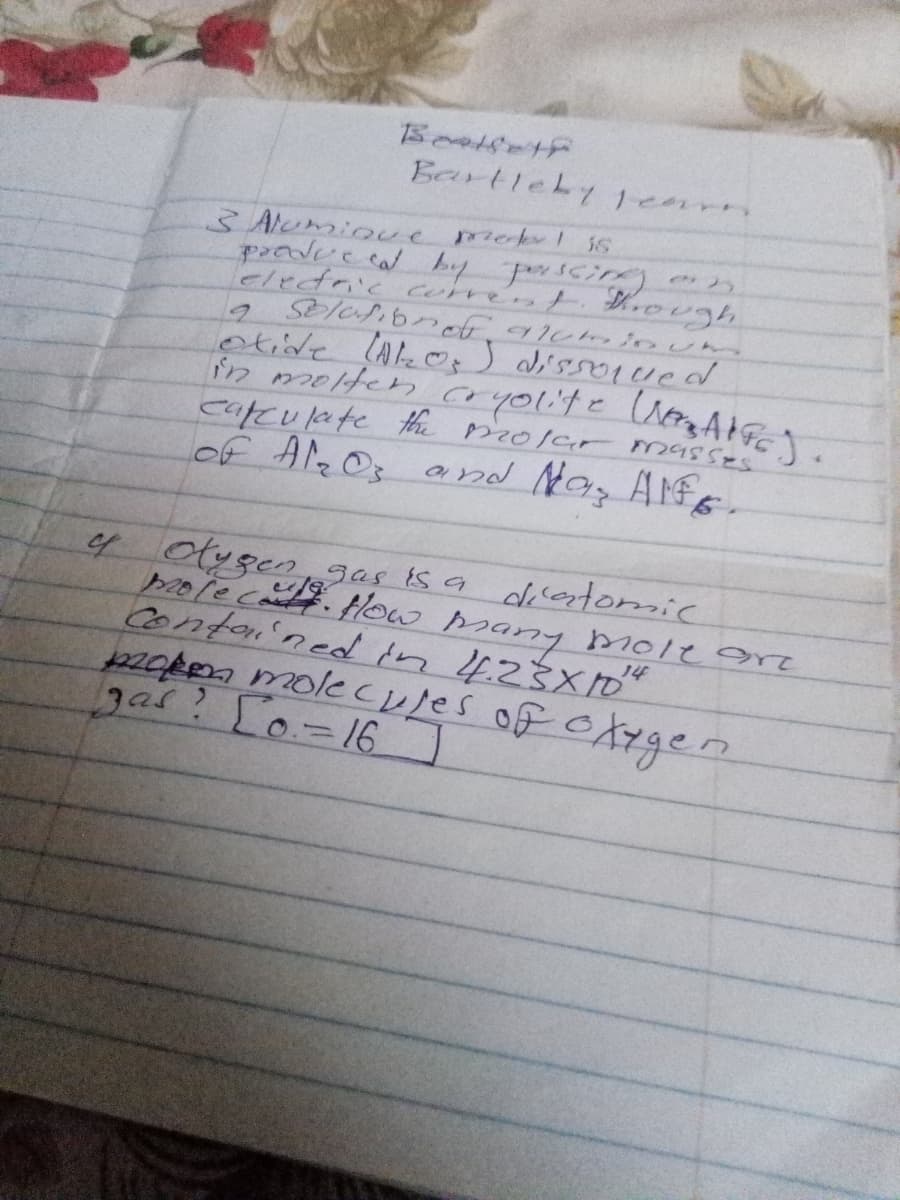 Bartleby learn
3 Alumioue metal is
produced by passing an
electric current. through
a Solution of aluminum
oxide (Al₂O₃) dissolued
in molten cryolite (Na₃AlF₆).
calculate the molar masses
of Al₂O₃ and Na₃AlF₆.
4 Oxygen gas is a diatomic
molecule. How many mole are
Contained in 4.23X10¹⁴
molecules of oxygen
gas? [O.=16]